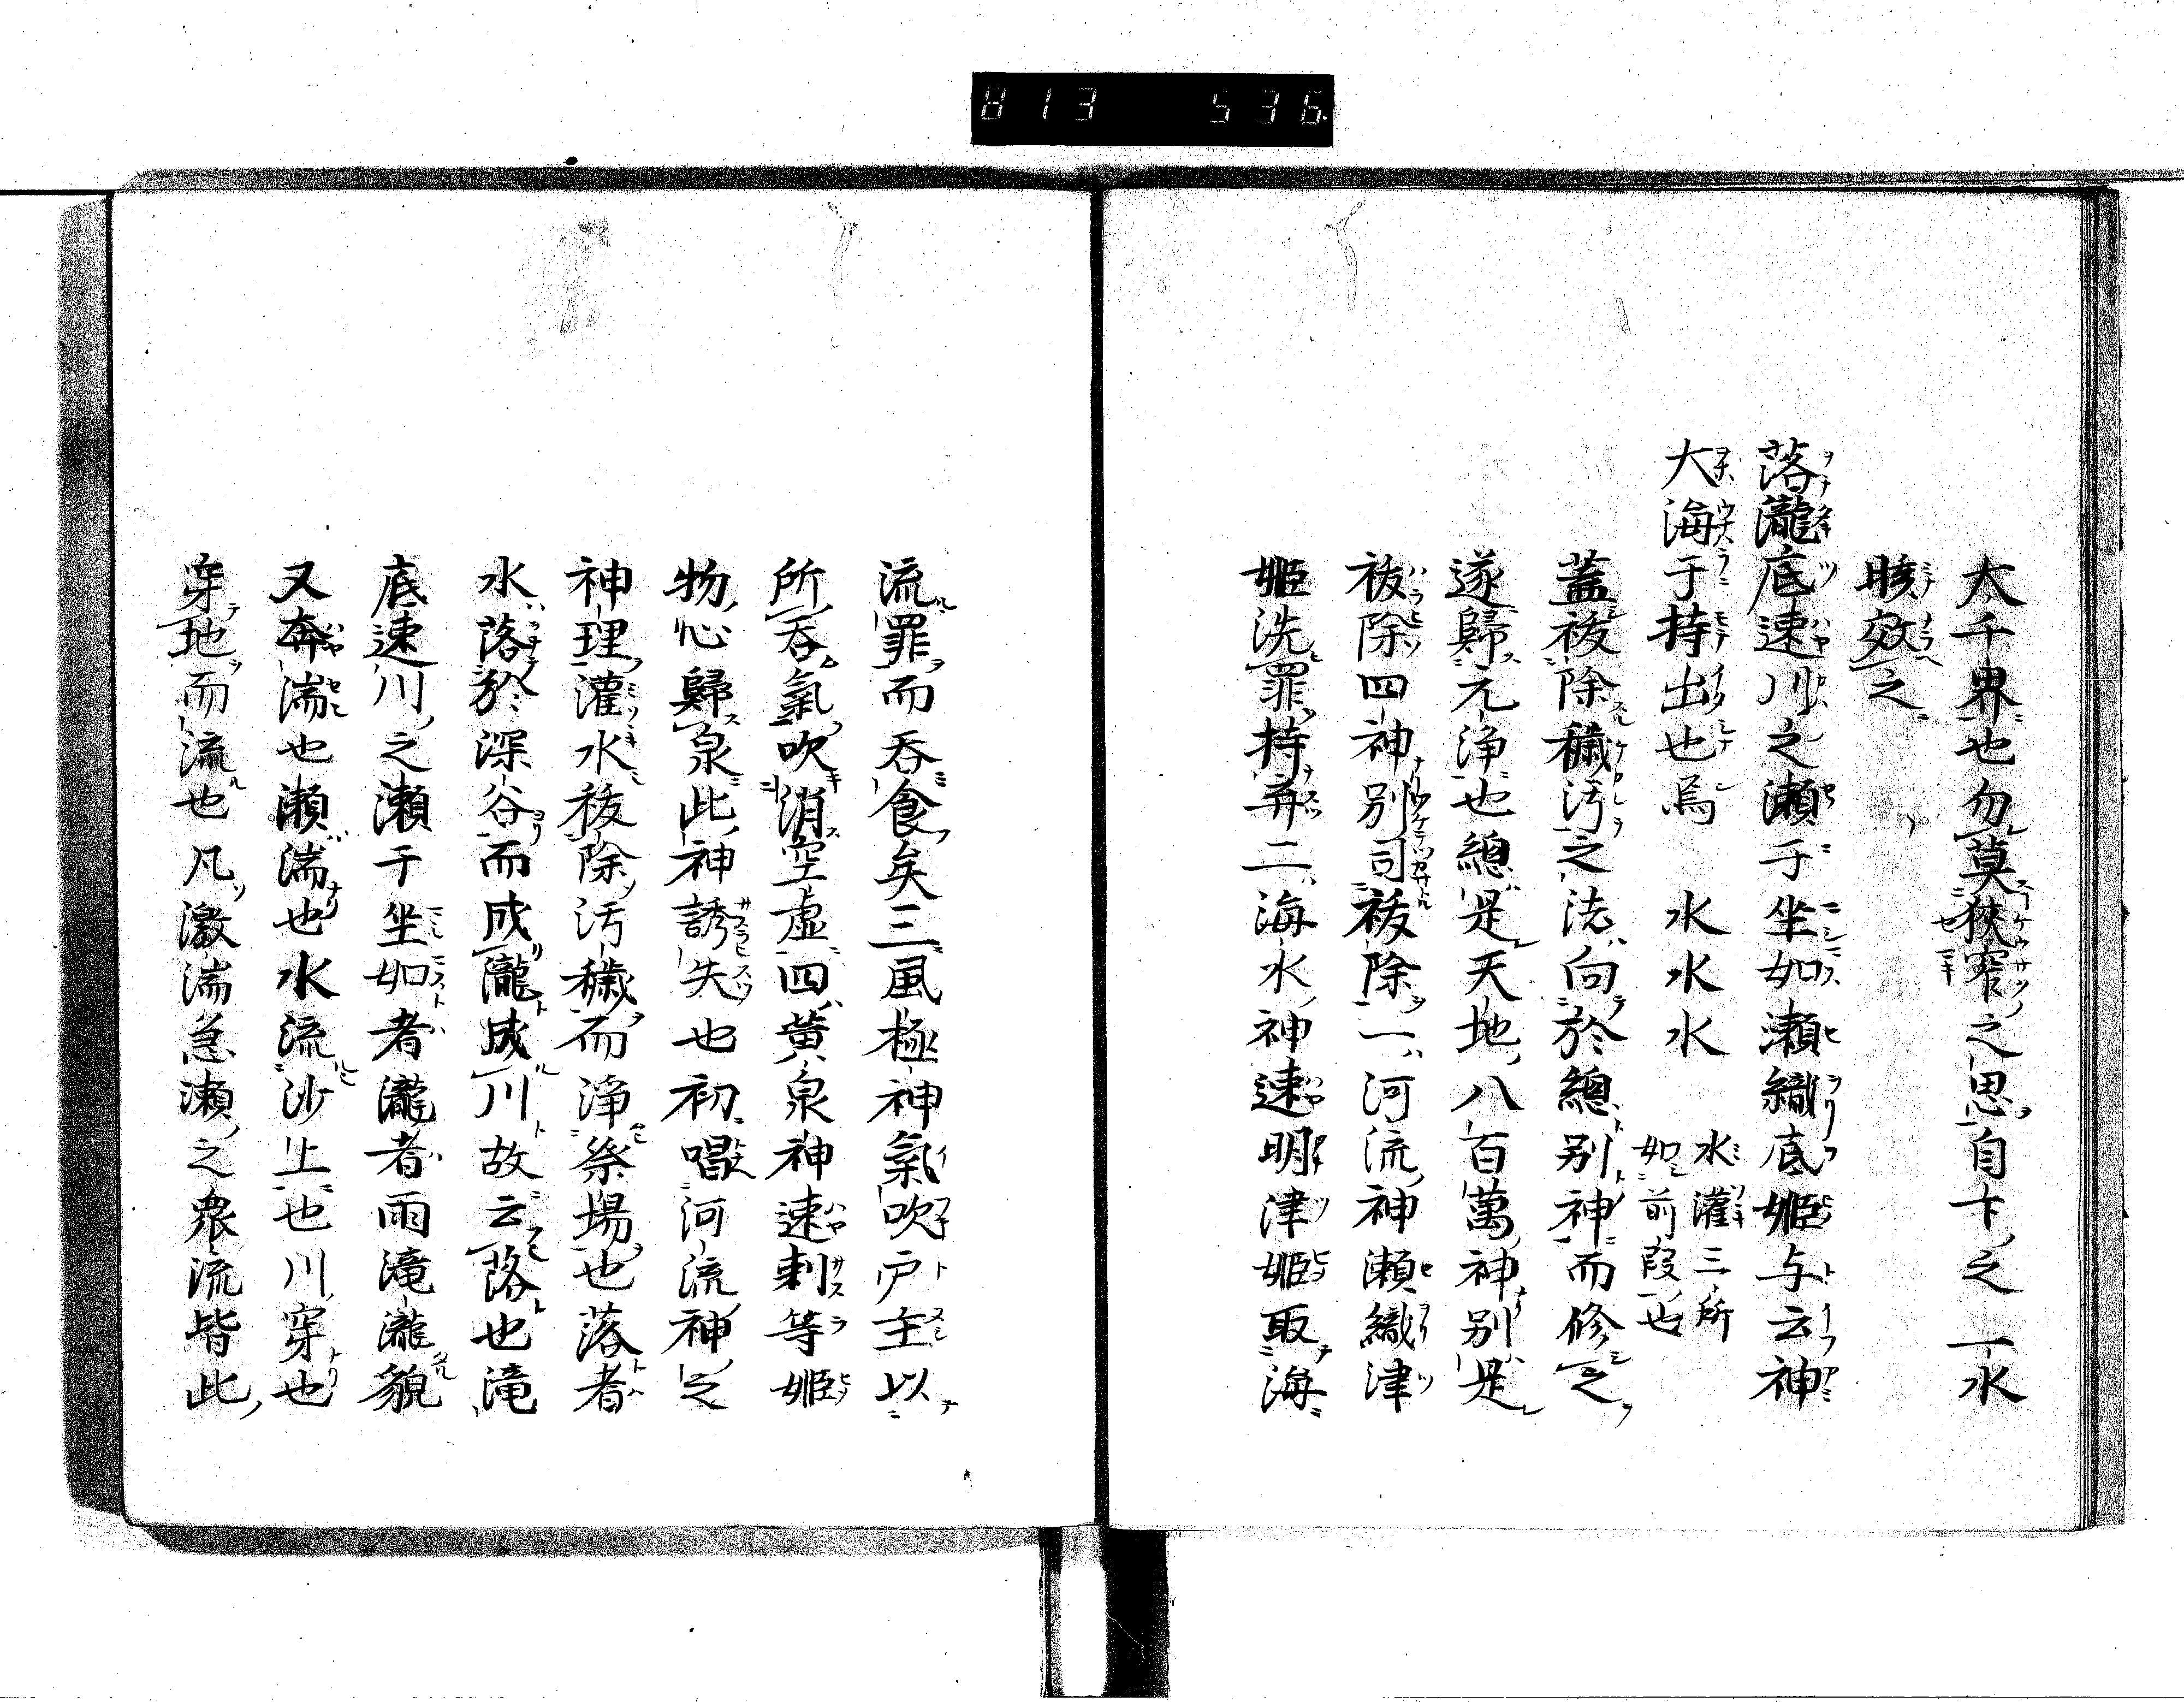 813 536
大千界也勿莫狹窄之思自下之一水
晐效之
落瀧底速川之瀬于坐如瀬織底姬与云神
大海于持出也焉 水水水 水灌三所
如前段也
蓋祓除穢汚之法向於總別神而修之
遂歸元淨也總是天地八百萬神別是
祓除四神別司祓除一河流神瀬織津
姬洗罪持弃二海水神速明津姬取海
流罪而呑食矣三風極神氣吹戸主以
所呑氣吹消空虛四黃泉神速刺等姬
物心歸泉此神誘失也初唱河流神之
神理灌水祓除汚穢而淨祭場也落者
水落於深谷而成瀧成川故云落也滝
底速川之瀬于坐如者瀧者雨滝瀧貌
又奔湍也瀬湍也水流沙上也川穿也
穿地而流也凡激湍急瀬之衆流皆此